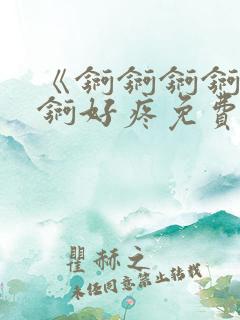 《锕锕锕锕
锕好疼免費
瞿赫之
未任同意禁止转载